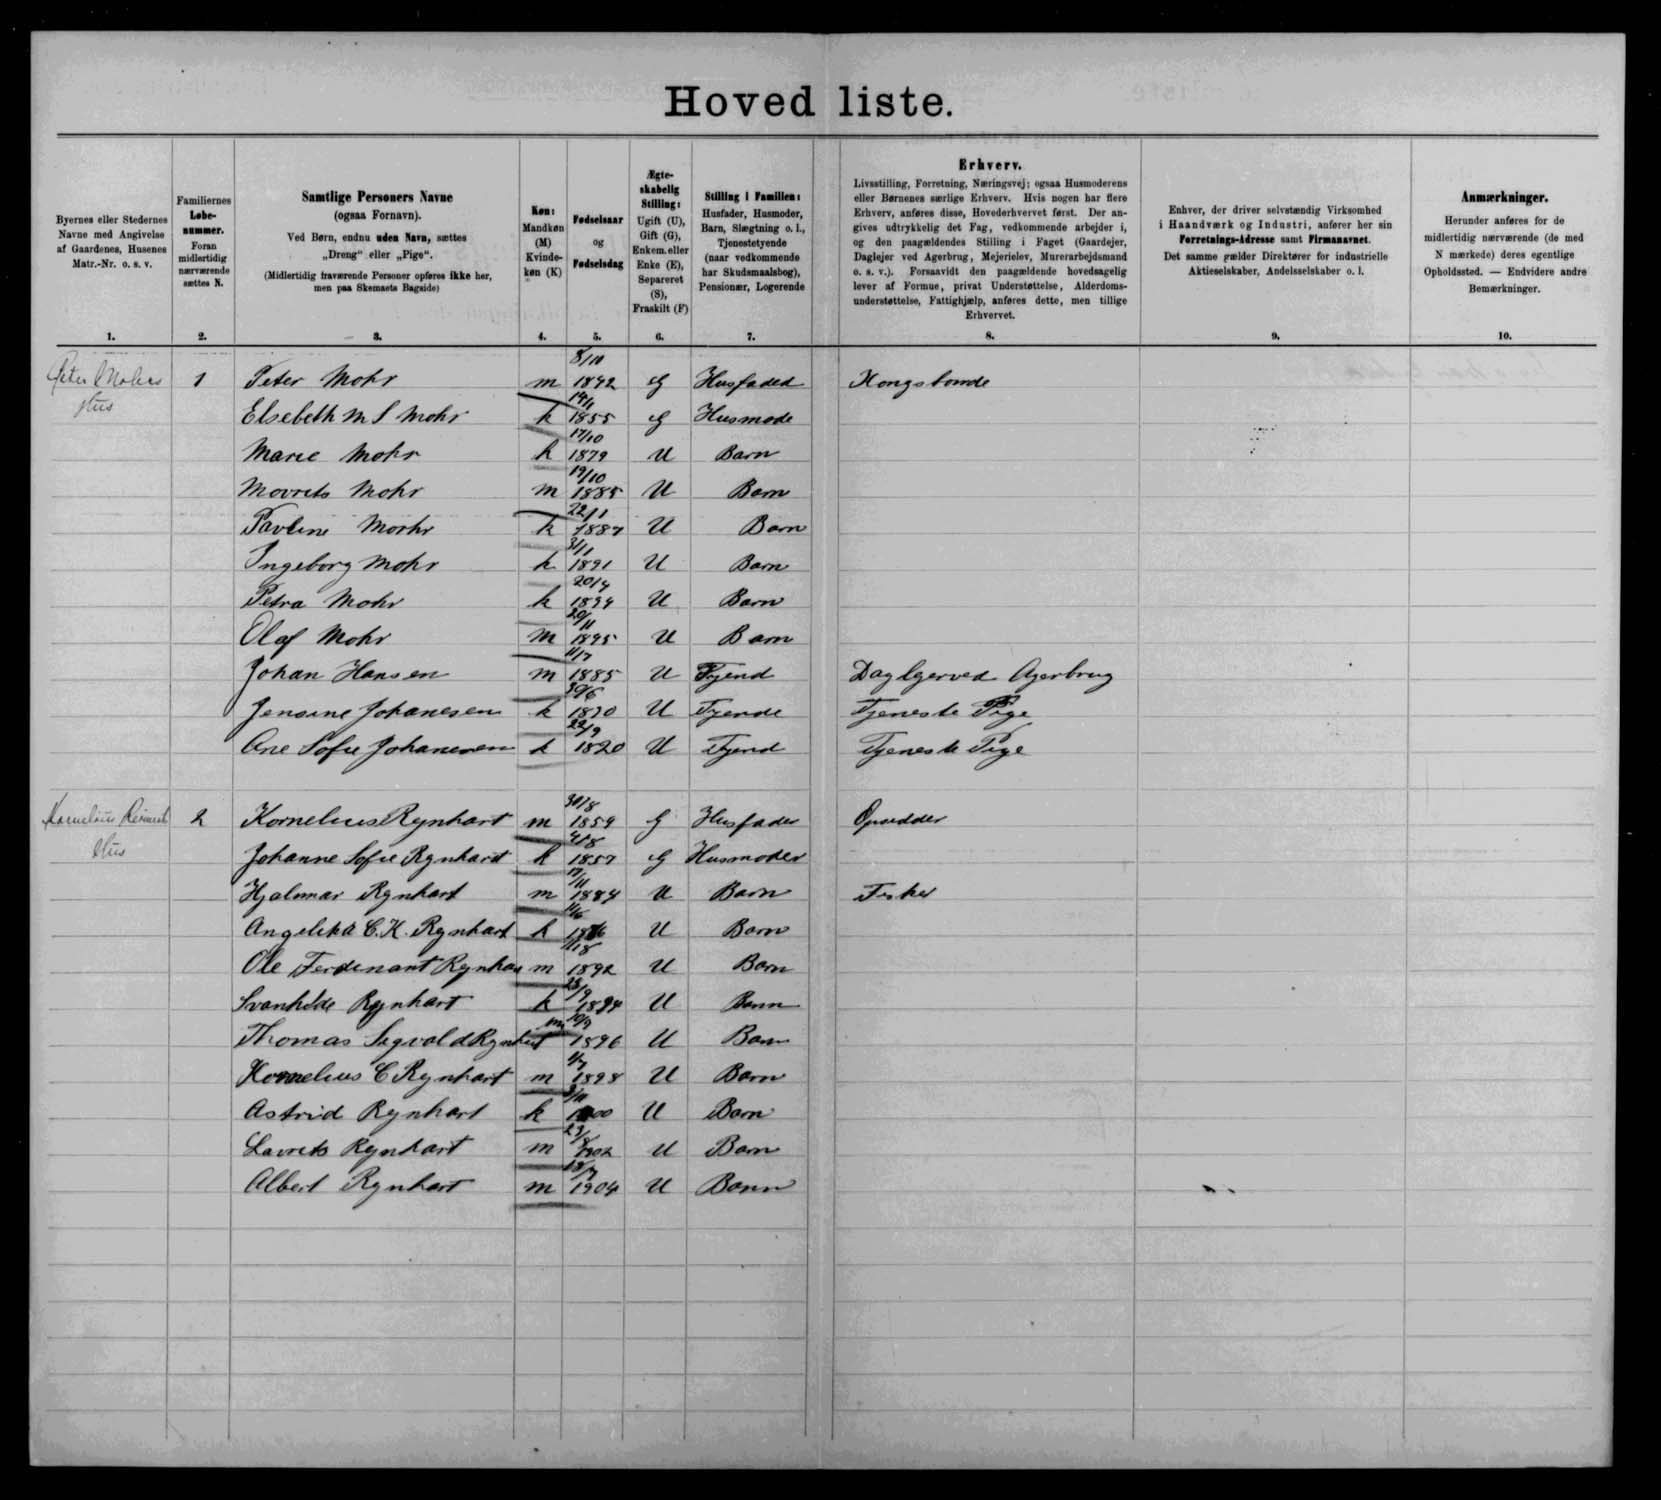 Hovedliste.
Byernes eller Stedernes
Navne med Angivelse
af Gaardenes, Husenes
Matr.-Nr. o. s. v.
1.
Familiernes
Løbe-
nummer.
Foran
midlertidig
nærværende
sættes N.
2.
Samtlige Personers Navne
(ogsaa Fornavn).
Ved Børn, endnu uden Navn, sættes
„Dreng“ eller „Pige“.
(Midlertidig fraværende Personer opføres ikke her,
men paa Skemaets Bagside)
3.
Køn:
Mandkøn
(M)
Kvinde-
køn (K)
4.
Fødselsaar
og
Fødselsdag
5.
Ægte-
skabelig
Stilling:
Ugift (U),
Gift (G),
Enkem. eller
Enke (E),
Separeret
(S),
Fraskilt (F)
6.
Stilling i Familien:
Husfader, Husmoder,
Barn, Slægtning o. l.,
Tjenestetyende
(naar vedkommende
har Skudsmaalsbog),
Pensionær, Logerende
7.
Erhverv.
Livsstilling, Forretning, Næringsvej; ogsaa Husmoderens
eller Børnenes særlige Erhverv. Hvis nogen har flere
Erhverv, anføres disse, Hovederhvervet først. Der an-
gives udtrykkelig det Fag, vedkommende arbejder i,
og den paagældendes Stilling i Faget (Gaardejer,
Daglejer ved Agerbrug, Mejerielev, Murerarbejdsmand
o. s. v.). Forsaavidt den paagældende hovedsagelig
lever af Formue, privat Understøttelse, Alderdoms-
understøttelse, Fattighjælp, anføres dette, men tillige
Erhvervet.
8.
Enhver, der driver selvstændig Virksomhed
i Haandværk og Industri, anfører her sin
Forretnings-Adresse samt Firmanavnet.
Det samme gælder Direktører for industrielle
Aktieselskaber, Andelsselskaber o. l.
9.
Anmærkninger.
Herunder anføres for de
midlertidig nærværende (de med
N mærkede) deres egentlige
Opholdssted. — Endvidere andre
Bemærkninger.
10.
Peter Mohrs 1 Peter Mohr m 8/10 1842 G Husfaded Kongsbonde
Hus Elsebeth M S Mohr k 1855 G Husmode
Marie Mohr k 17/10 1879 U Barn
Movrits Mohr m 19/10 1885 U Barn
Pavline Morhr k 22/1 1887 U Barn
Ingeborg Mohr k 31/1 1891 U Barn
Petra Mohr k 20/4 1894 U Barn
Olaf Mohr m 20/11 1895 U Barn
Johan Hansen m 11/7 1885 U Tyend Daglgerved Agerbrug
Jensine Johanesen k 30/6 U Tyende Tjeneste Pige
Ane Sofie Johanesen k 22/9 U Tyend Tjeneste Pige
Kornelius 2 Kornelius Rynhart m 30/8 1859 G Husfader Opsedder
Hus Johanne Sofie Rynhart k 4/8 1857 G Husmoder
Hjalmar Rynhart m 1884 U Barn Fisker
Angelika C. K. Rynhart k 11/6 U Barn
Ole Ferdinant Rynhar m 11/8 1892 U Barn
Svanhilde Rynhart k 1894 U Barn
Thomas Sigvald Rynhart m 10/9 1896 U Barn
Kornelius C Rynhart m 1/7 1898 U Barn
Astrid Rynhart k 3/11 1900 U Barn
Lavrits Rynhart m 23/8 1902 U Barn
Albert Rynhart m 18/7 1904 U Barn